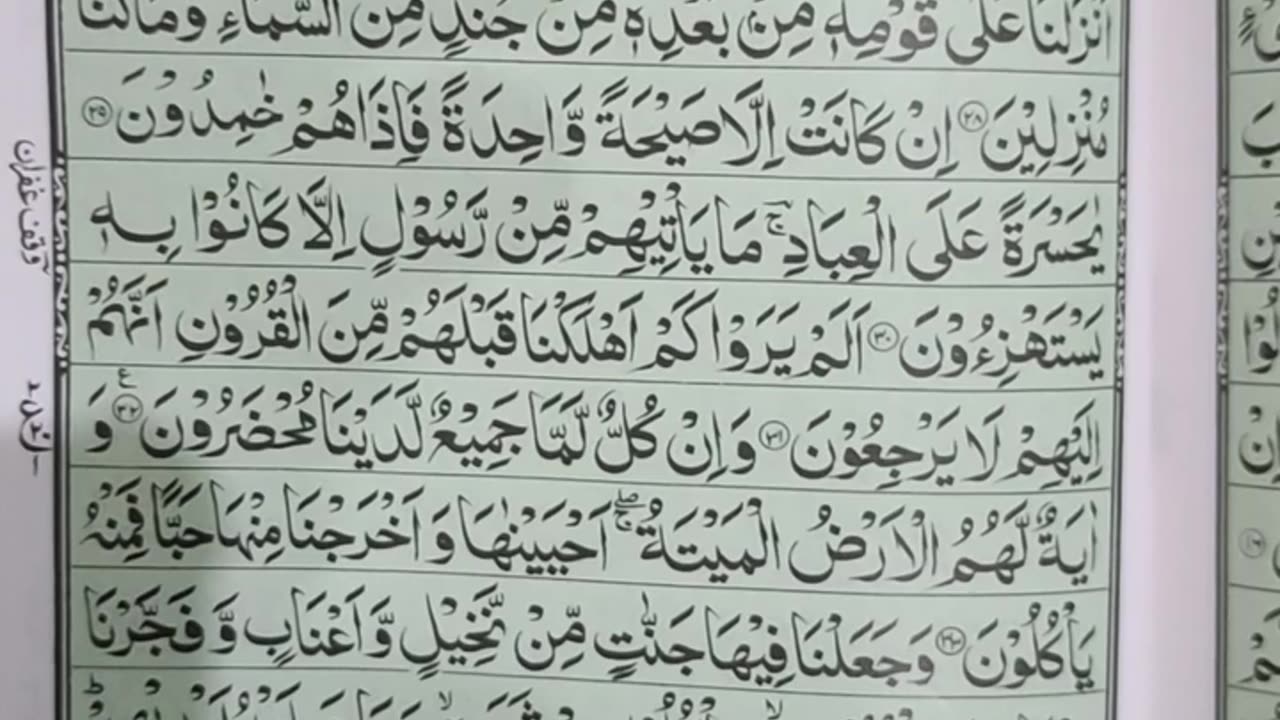 اَنْزَلْنَا عَلٰى قَوْمِهٖ مِنْۢ بَعْدِهٖ مِنْ جُنْدٍ مِّنَ السَّمَآءِ وَمَا كُنَّا
مُنْزِلِيْنَ ﴿۲۸﴾ اِنْ كَانَتْ اِلَّا صَيْحَةً وَّاحِدَةً فَاِذَا هُمْ خٰمِدُوْنَ ﴿۲۵﴾
يٰحَسْرَةً عَلَى الْعِبَادِ ۚ مَا يَاْتِيْهِمْ مِّنْ رَّسُوْلٍ اِلَّا كَانُوْا بِهٖ
يَسْتَهْزِءُوْنَ ﴿۳۰﴾ اَلَمْ يَرَوْا كَمْ اَهْلَكْنَا قَبْلَهُمْ مِّنَ الْقُرُوْنِ اَنَّهُمْ
اِلَيْهِمْ لَا يَرْجِعُوْنَ ﴿۳۱﴾ وَاِنْ كُلٌّ لَّمَّا جَمِيْعٌ لَّدَيْنَا مُحْضَرُوْنَ ﴿۳۲﴾ ع وَ
اٰيَةٌ لَّهُمُ الْاَرْضُ الْمَيْتَةُ ۖۚ اَحْيَيْنٰهَا وَاَخْرَجْنَا مِنْهَا حَبًّا فَمِنْهُ
يَاْكُلُوْنَ ﴿۳۳﴾ وَجَعَلْنَا فِيْهَا جَنّٰتٍ مِّنْ نَّخِيْلٍ وَّاَعْنَابٍ وَّفَجَّرْنَا
وقف غفران